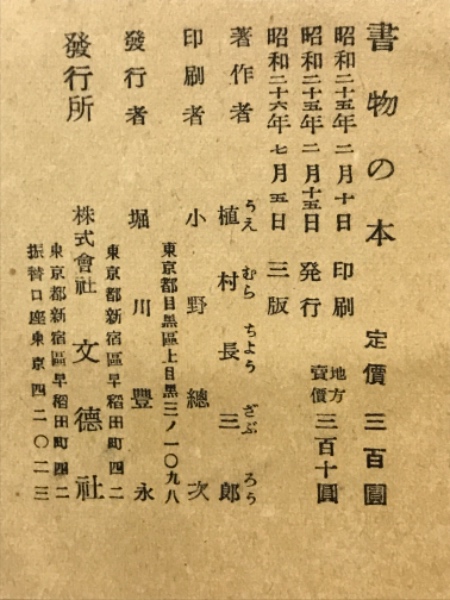 書物の本 定價 三百圓
地方賣價 三百十圓
昭和二十五年二月十日 印刷
昭和二十五年二月十五日 発行
昭和二十六年七月五日 三版
著作者 植村長三郎
うえ むら ちよう ざぶ ろう
印刷者 小野總次
東京都目黒區上目黒三ノ一〇九八
發行者 堀川豐永
東京都新宿區早稻田町四二
發行所 株式會社 文德社
東京都新宿區早稻田町四二
振替口座東京四二〇二三